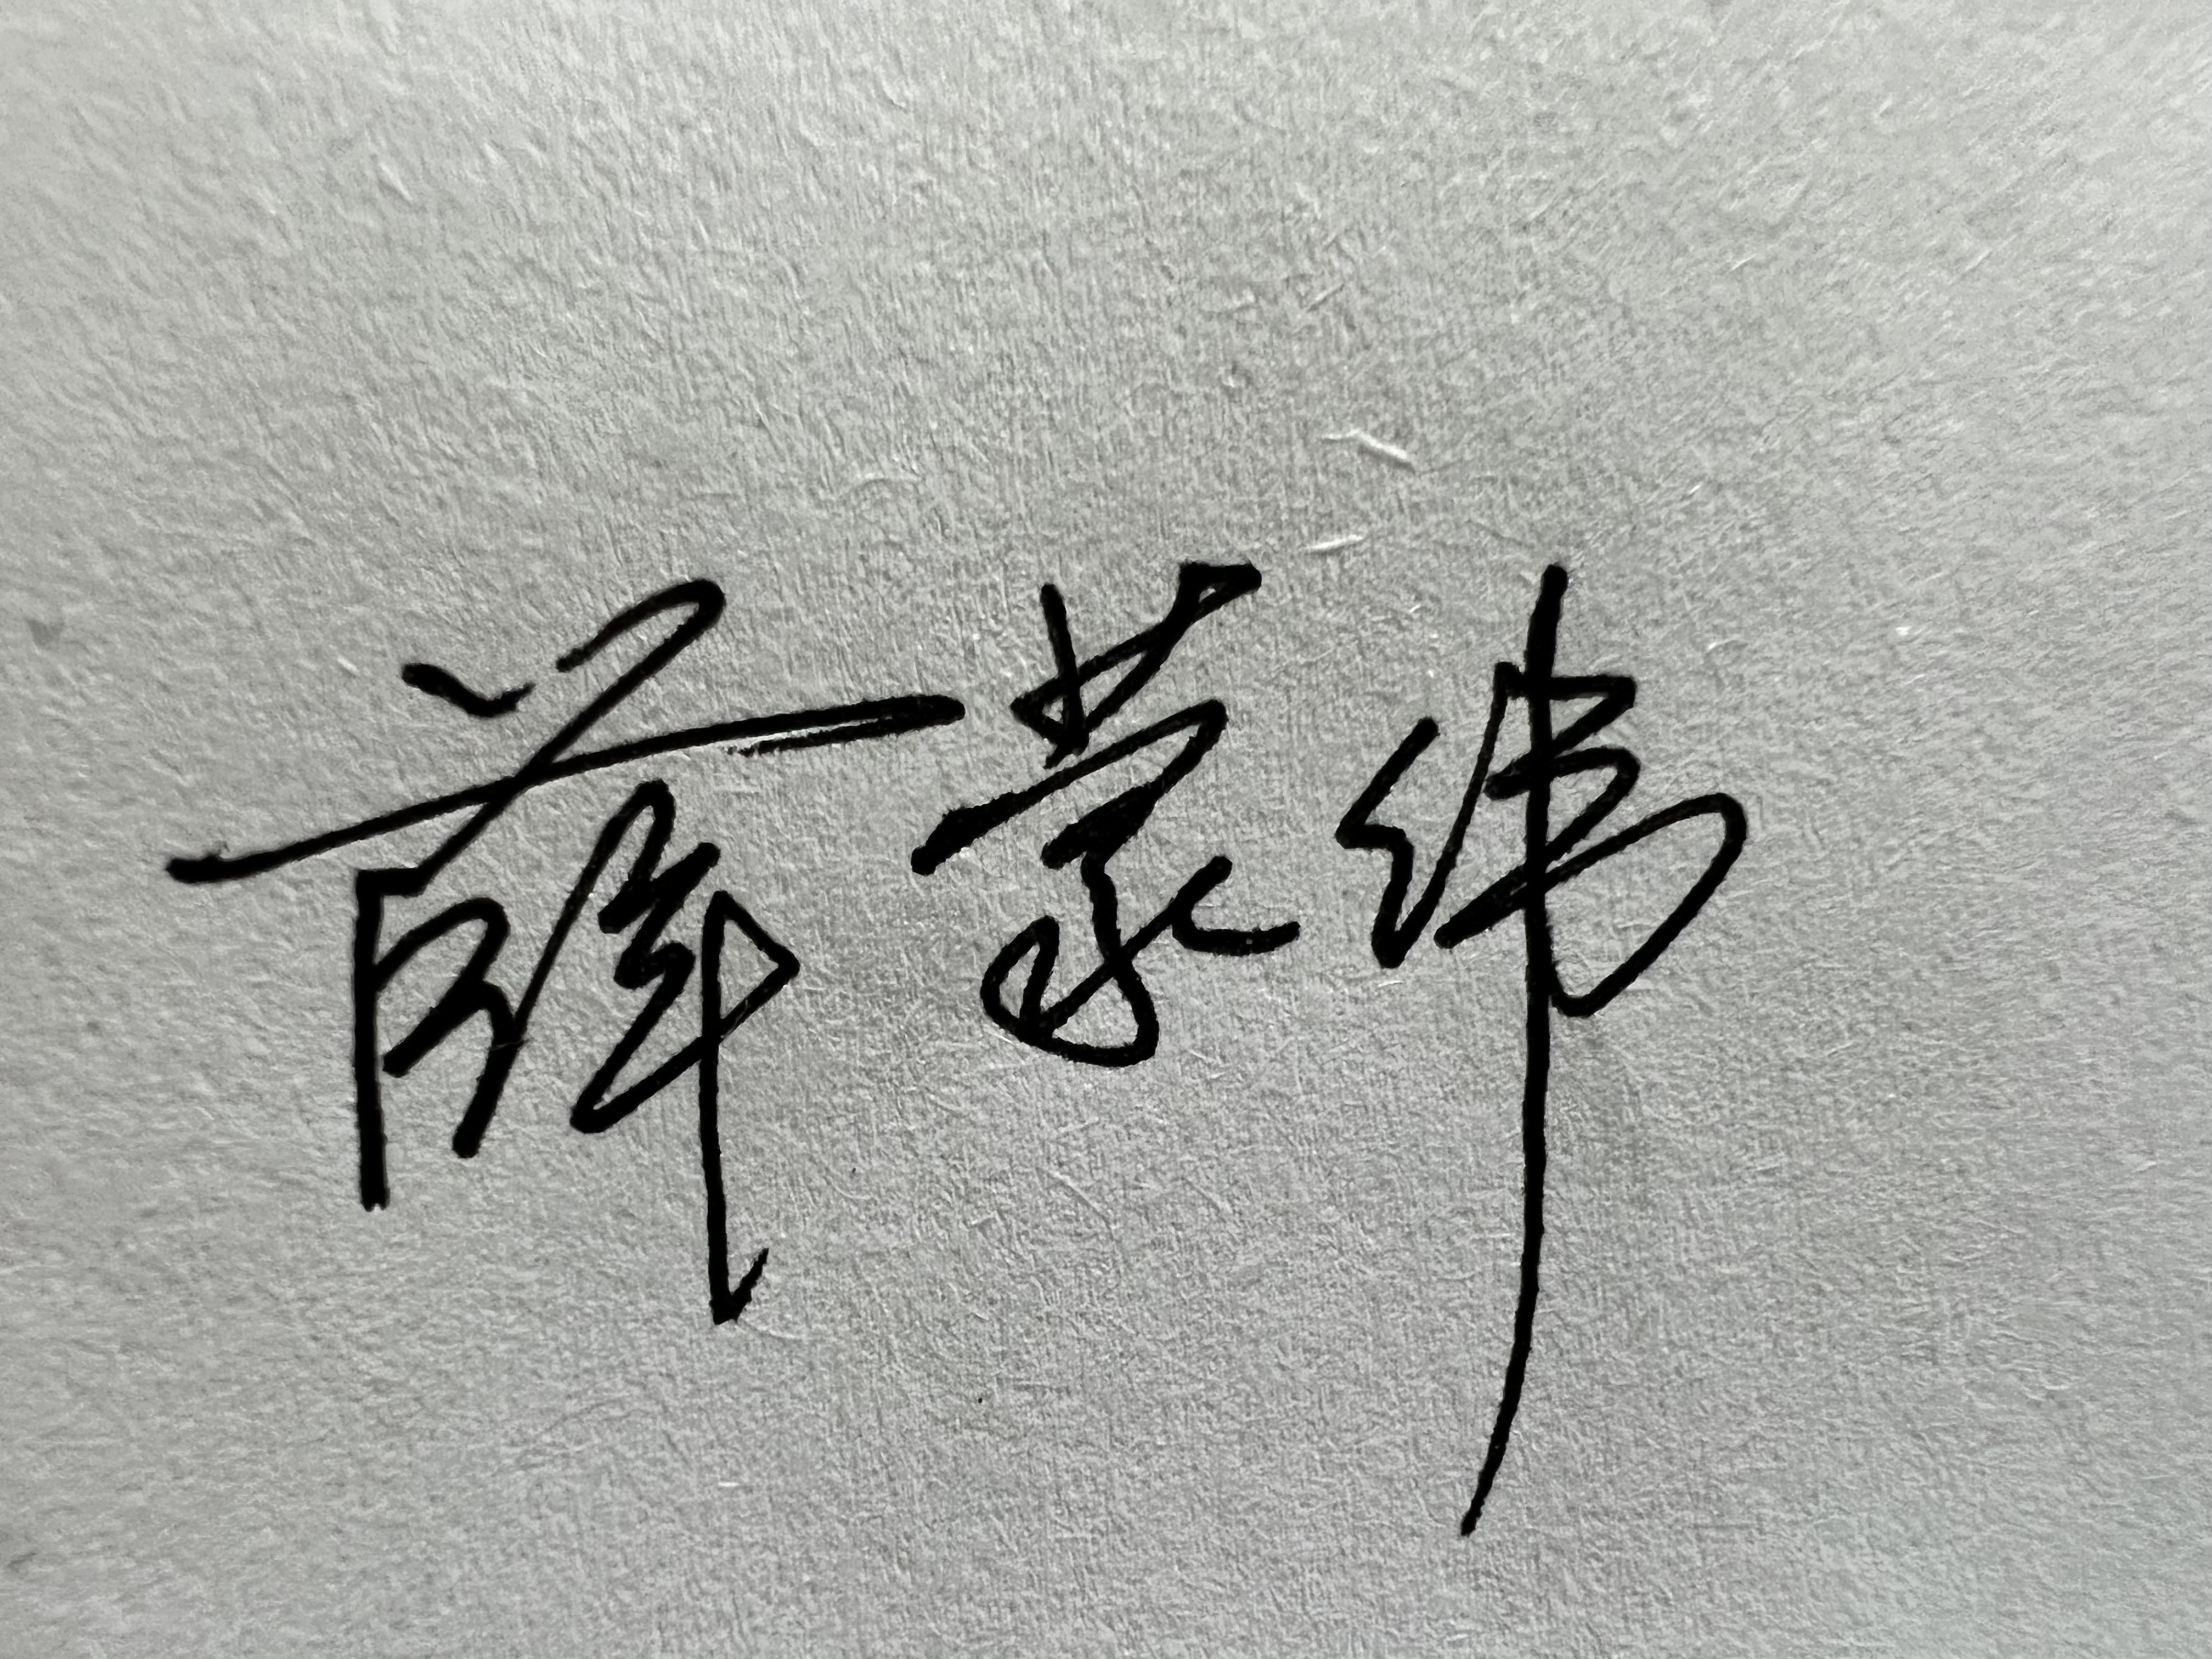 薛蒙纬